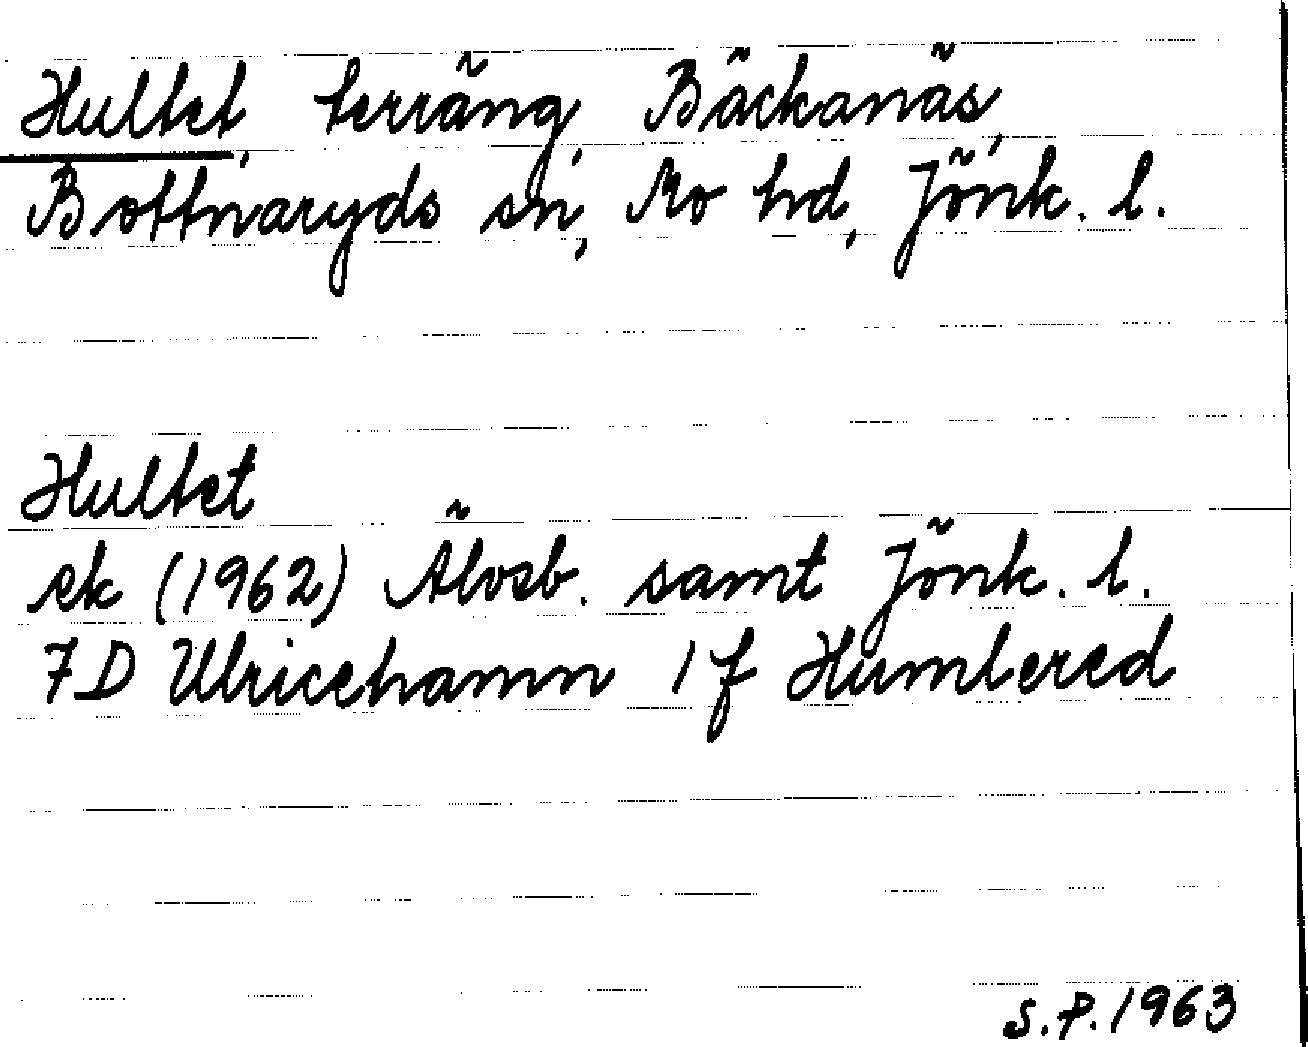 Hultet, terräng, Bäckanäs,
Bottnaryds sn, Mo hd, Jönk. l.
Hultet
ek (1962) Älvsb. samt Jönk. l.
7D Ulricehamn 1 f Humlered
S.P. 1963